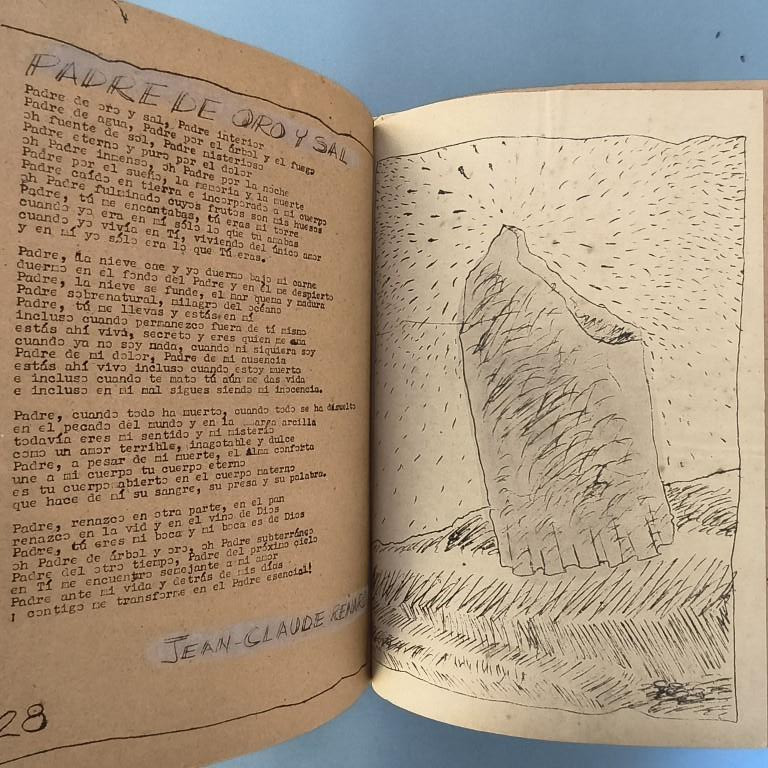 PADRE DE ORO Y SAL
Padre de oro y sal, Padre interior
Padre de agua, Padre por el árbol y el fuego
oh fuente de sol, Padre misterioso
Padre eterno y puro por el dolor
oh Padre inmenso, oh Padre por la noche
Padre por el sueño, la memoria y la muerte
Padre caído en tierra e incorporado a mi cuerpo
oh Padre fulminado cuyos frutos son mis huesos
Padre, tú me encantabas, tú eras mi torre
cuando yo era en mí sólo lo que tu amabas
cuando yo vivía en Tí, viviendo del único amor
y en mí yo sólo era lo que Tú eras.
Padre, la nieve cae y yo duermo bajo mi carne
duermo en el fondo del Padre y en él me despierto
Padre, la nieve se funde, el mar quema y madura
Padre sobrenatural, milagro del océano
Padre, tú me llevas y estás en mí
incluso cuando permanezco fuera de tí mismo
estás ahí vivo, secreto y eres quien me ama
cuando ya no soy nada, cuando ni siquiera soy
Padre de mi dolor, Padre de mi ausencia
estás ahí vivo incluso cuando estoy muerto
e incluso cuando te mato tú aún me das vida
e incluso en mi mal sigues siendo mi inocencia.
Padre, cuando todo ha muerto, cuando todo se ha disuelto
en el pecado del mundo y en la amarga arcilla
todavía eres mi sentido y mi misterio
como un amor terrible, inagotable y dulce
Padre, a pesar de mi muerte, el Alma conforta
une a mi cuerpo tu cuerpo eterno
es tu cuerpo abierto en el cuerpo materno
que hace de mí su sangre, su presa y su palabra.
Padre, renazco en otra parte, en el pan
renazco en la vid y en el vino de Dios
Padre, tú eres mi boca y mi boca es de Dios
oh Padre de árbol y oro, oh Padre subterráneo
Padre del otro tiempo, Padre del próximo cielo
en Tí me encuentro semejante a mi amor
Padre ante mi vida y detrás de mis días
¡ contigo me transformo en el Padre esencial!
JEAN-CLAUDE RENARD
28